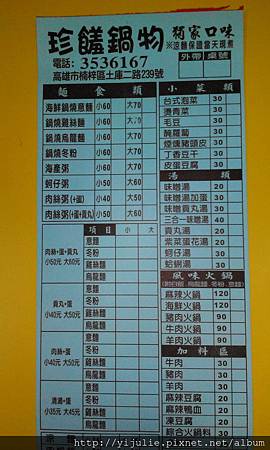 珍饈鍋物
獨家口味
※涼麵保證當天現煮
電話: 3536167
高雄市楠梓區土庫二路239號
外帶 桌號
麵食類
海鮮鍋燒意麵 小60 大70
鍋燒雞絲麵 小60 大70
鍋燒烏龍麵 小60 大70
鍋燒冬粉 小60 大70
海產粥 小60 大70
蚵仔粥 小60 大70
肉絲粥(+蛋) 小50 大60
肉絲粥(+蛋+貢丸) 小60 大70
項目 小 大
肉絲+蛋+貢丸
小50元 大60元
意麵
冬粉
雞絲麵
烏龍麵
貢丸+蛋
小40元 大50元
意麵
冬粉
雞絲麵
烏龍麵
肉絲+蛋
小40元 大50元
意麵
冬粉
雞絲麵
烏龍麵
清湯+蛋
小35元 大45元
意麵
冬粉
雞絲麵
烏龍麵
小菜類
台式泡菜 30
燙青菜 30
毛豆 30
醃蘿蔔 30
煙燻豬頭皮 30
丁香豆干 30
皮蛋豆腐 30
湯類
味噌湯 20
味噌湯加蛋 30
味噌貢丸湯 30
三合一味噌湯 40
貢丸湯 20
紫菜蛋花湯 20
蚵仔湯 30
蛤蜊湯 30
風味火鍋
麻辣火鍋 120
海鮮火鍋 120
豬肉火鍋 90
牛肉火鍋 90
羊肉火鍋 90
加料區
牛肉 30
豬肉 30
羊肉 30
麻辣豆腐 20
麻辣鴨血 20
凍豆腐 20
綜合火鍋料 30
http://yijulie.pixnet.net/album